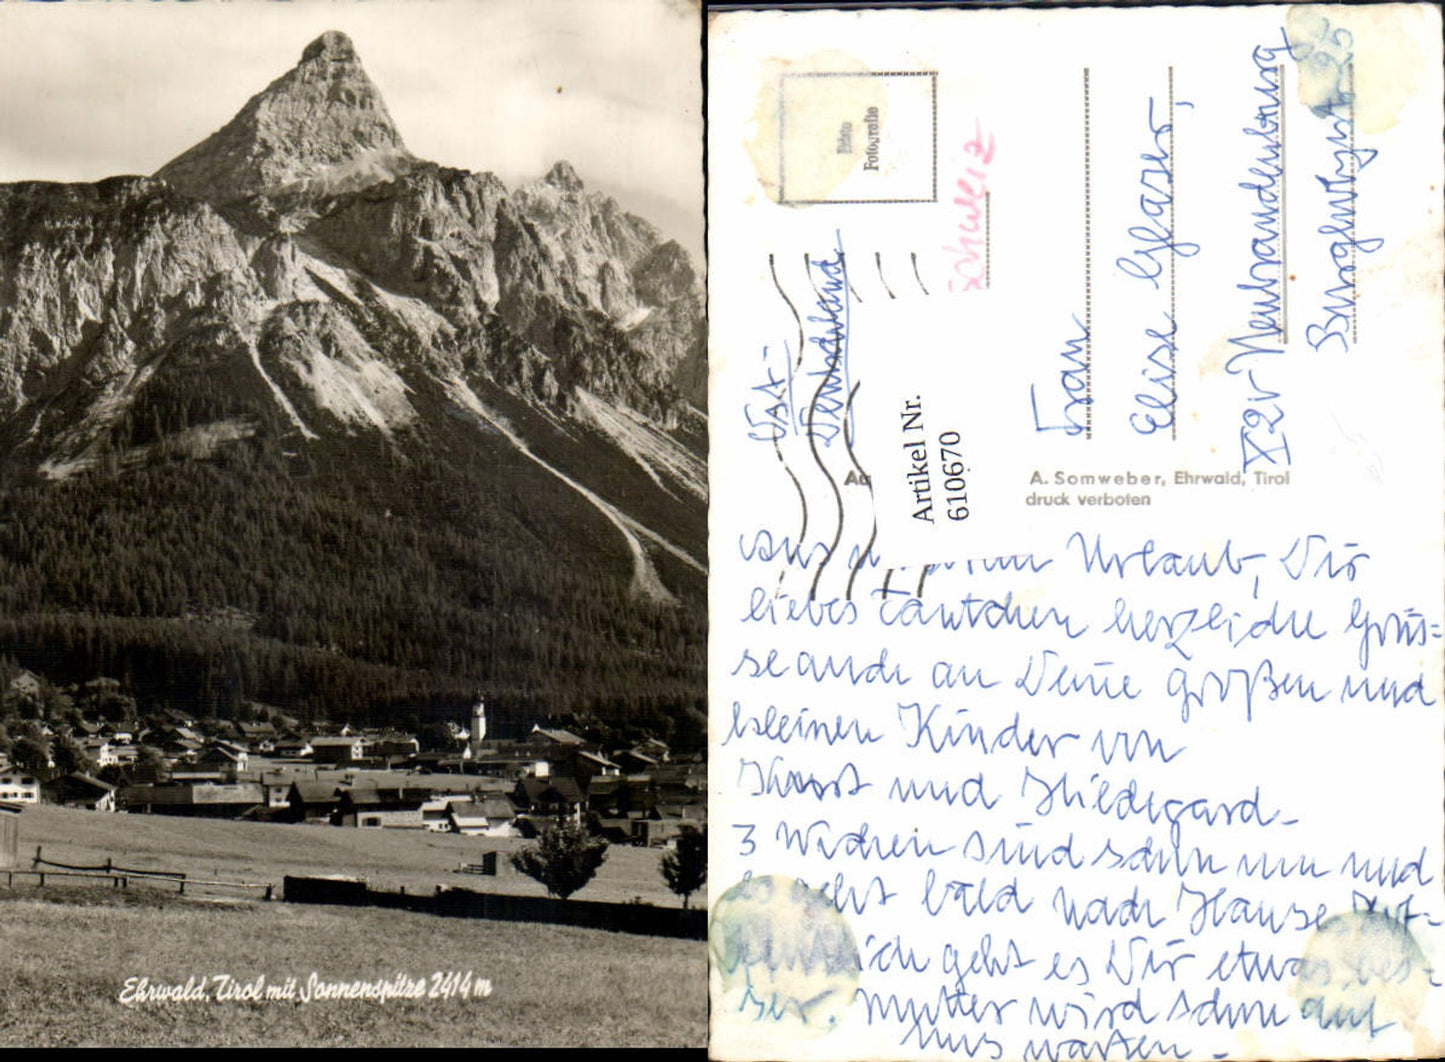 Ehrwald, Tirol mit Sonnenspitze 2414 m
Bitte
Fotografie
Schweiz
Ost-
Deutschland
Frau
Elise Glaser,
X2v Neubrandenburg
Burgholzstr. 25
Artikel Nr.
610670
Au
A. Somweber, Ehrwald, Tirol
druck verboten
Aus Urlaub, Dir
liebes Tantchen herzliche Grüs=
se auch an Deine großen und
kleinen Kinder von
Horst und Hildegard.
3 Wochen sind schon um und
es geht bald nach Hause. Hof=
fentlich geht es Dir etwas bes=
ser. Mutter wird schon auf
uns warten.